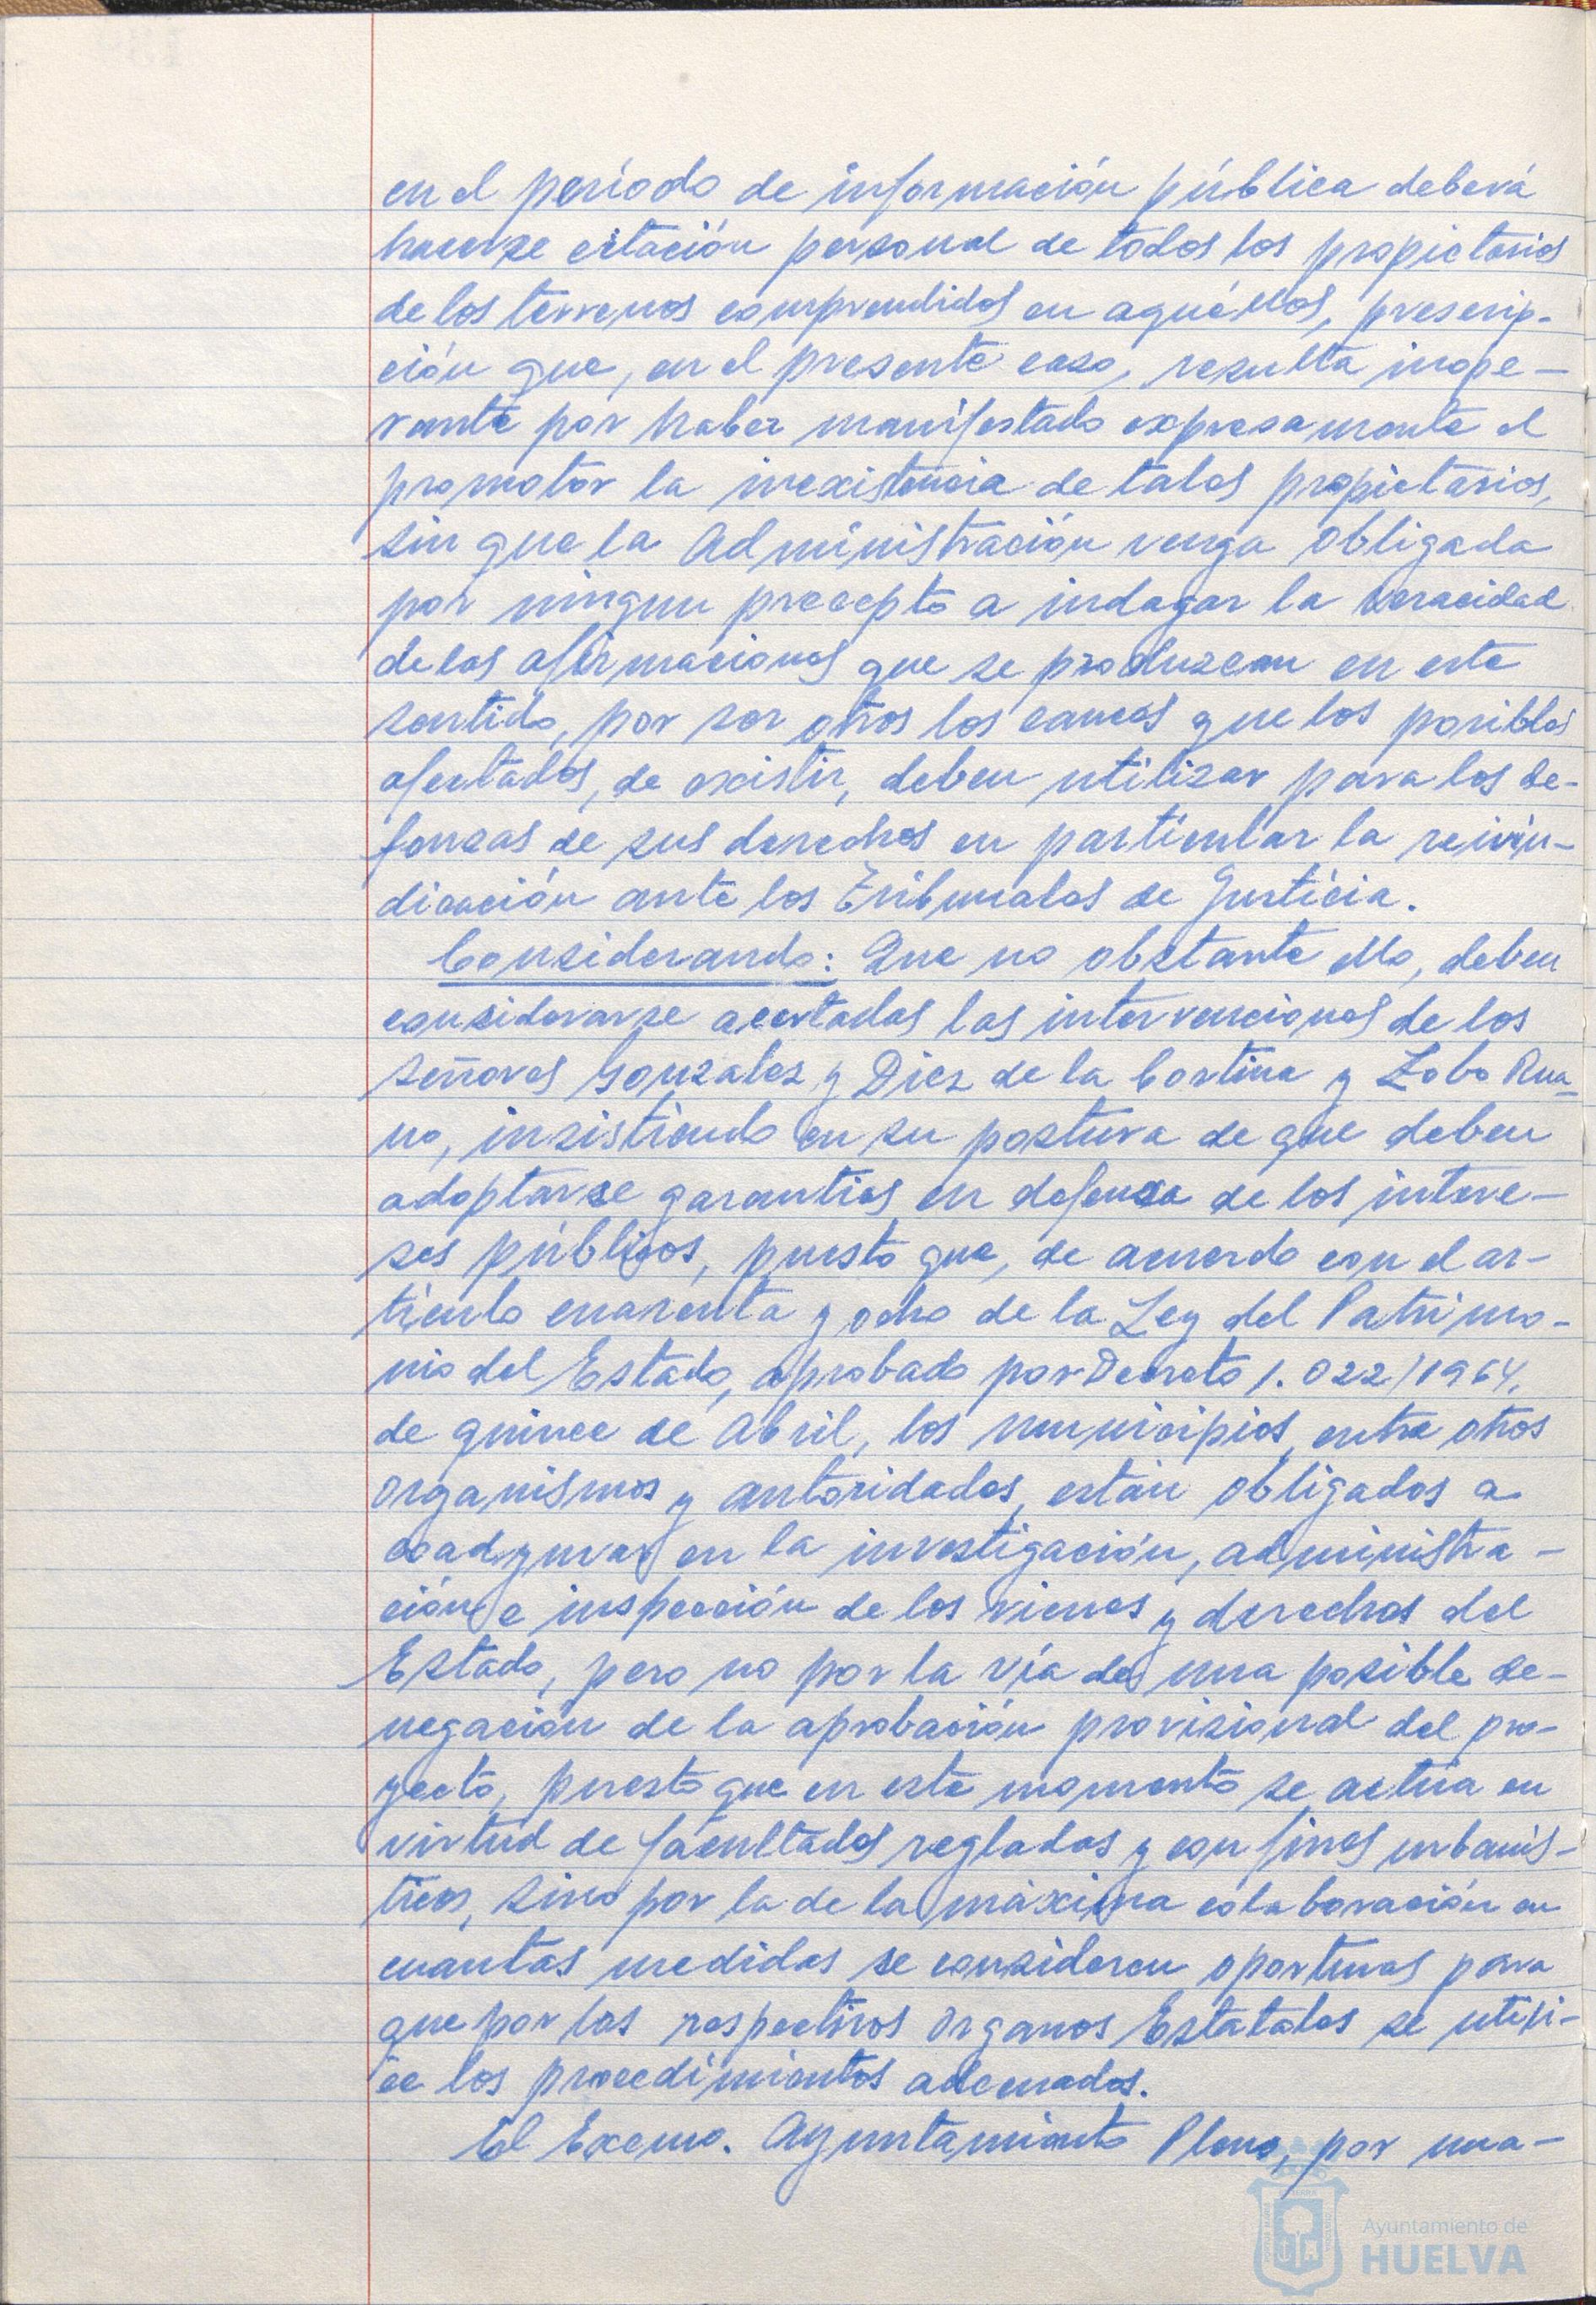 en el período de información pública deberá
hacerse citación personal de todos los propietarios
de los terrenos comprendidos en aquéllos, prescrip-
ción que, en el presente caso, resulta inope-
rante por haber manifestado expresamente el
promotor la inexistencia de tales propietarios,
sin que la Administración venga obligada
por ningun precepto a indagar la veracidad
de las afirmaciones que se produzcan en este
sentido, por ser otros los cauces que los posibles
afectados, de existir, deben utilizar para los de-
fensas de sus derechos en particular la reivin-
dicación ante los Tribunales de Justicia.
Considerando: Que no obstante ello, deben
considerarse acertadas las intervenciones de los
señores Gonzalez y Diez de la Cortina y Lobo Rua-
no, insistiendo en su postura de que deben
adoptarse garantias en defensa de los intere-
ses públicos, puesto que, de acuerdo con el ar-
ticulo cuarenta y ocho de la Ley del Patrimo-
nio del Estado, aprobado por Decreto 1.022/1964,
de quince de Abril, los municipios, entre otros
organismos y autoridades, están obligados a
coadyuvar en la investigación, administra-
ción e inspección de los vienes y derechos del
Estado, pero no por la vía de una posible de-
negación de la aprobación provisional del pro-
yecto, puesto que en este momento se actúa en
virtud de facultades regladas y con fines urbanis-
ticos, sino por la de la máxima colaboración en
cuantas medidas se consideren oportunas para
que por los respectivos organos Estatales se utili-
ce los procedimientos adecuados.
El Excmo. Ayuntamiento Pleno, por una-
Ayuntamiento de
HUELVA